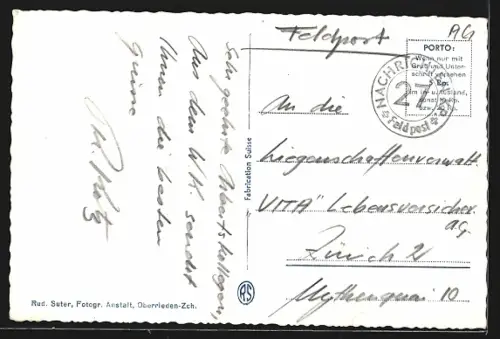 Feldpost
AG
PORTO:
Wenn nur mit
Gruß und Unter-
schrift versehen
Rp.
im In- u. Ausland,
sonst
NACHRI
27
Feldpost
An die
Liegenschaftenverwalt.
VITA" Lebensversicher.
AG
Zürich 2
Mythenquai 10
Sehr geehrte Arbeitskollegen,
Aus dem WK sendet
Ihnen die besten
Grüsse
Fabrication Suisse
RS
Rud. Suter, Fotogr. Anstalt, Oberrieden-Zch.